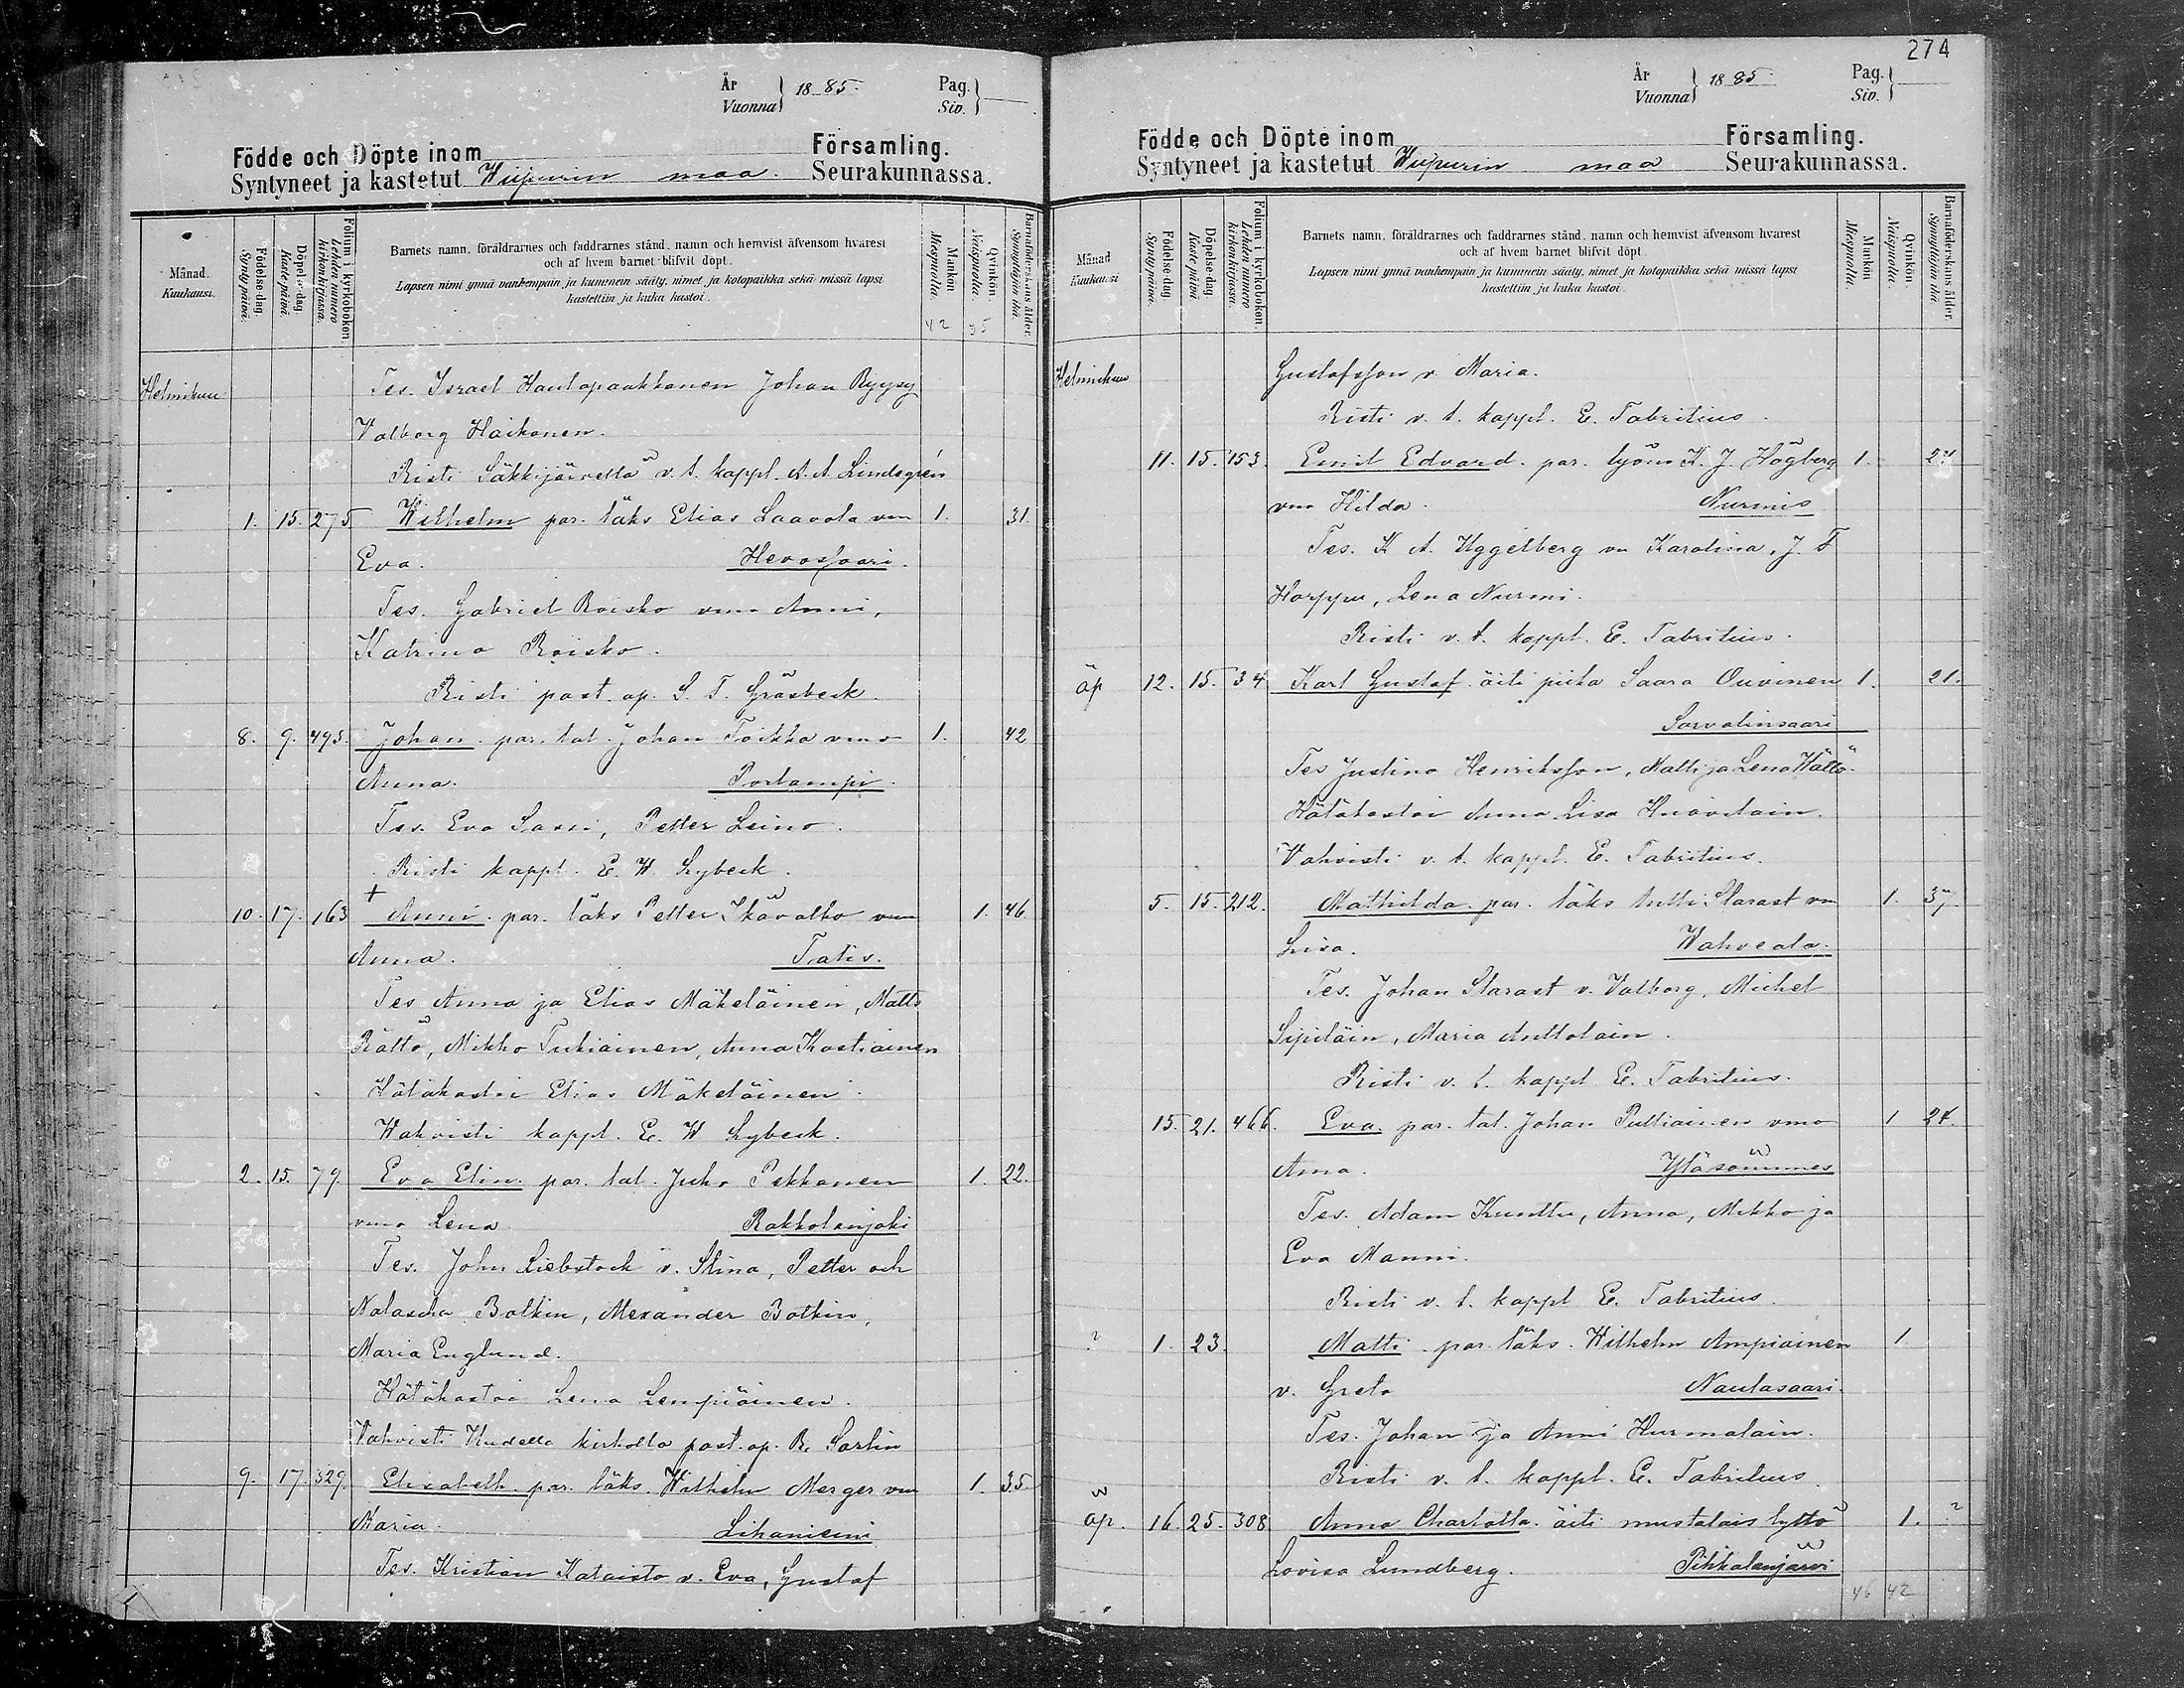 År
Vuonna } 1885. Pag.
Siv.
Födde och Döpte inom Församling.
Syntyneet ja kastetut Wiipurin maa. Seurakunnassa.
Månad.
Kuukausi.
Födelse dag.
Synty päivä.
Döpelse dag.
Kaste päivä.
Folium i kyrkobokon
Lehden numero
kirkonkirjassa.
Barnets namn, föräldrarnes och faddrarnes stånd, namn och hemvist äfvensom hvarest
och af hvem barnet blifvit döpt.
Lapsen nimi ynnä vanhempain ja kummein sääty, nimet ja kotopaikka sekä missä lapsi
kastettiin ja kuka kastoi.
Mankön.
Miespuolia.
Qvinkön.
Naispuolia.
Barnaföderskans ålder.
Synnyttäjän ikä.
42 35
Helmikuu Tes. Israel Hautapaakkanen Johan Ryysy
Valborg Haikonen.
Risti Säkkijärvellä v. t. kappl. A. A. Lindegrén
1. 15. 275 Wilhelm par. läks Elias Laavola vmo 1. 31.
Eva. Hevossaari.
Tes. Gabriel Roisko vmo Anni,
Katrina Roisko.
Risti past. ap. S. T. Gräsbeck.
8. 9. 495. Johan par. tal. Johan Toikka vmo 1. 42
Anna. Portampi.
Tes. Eva Saxi, Petter Leino.
Risti kappl. E. W. Lybeck.
+
10. 17. 163 Anni par. läks Petter Ikävalko vmo 1. 46
Anna. Talis.
Tes Anna ja Elias Mäkeläinen, Matts
Rättö, Mikko Tukiainen, Anna Kostiainen
Hätäkastoi Elias Mäkeläinen.
Wahvisti kappl. E. W Lybeck.
2. 15. 79. Eva Elin par. tal. Juho Pekkanen 1. 22.
vmo Lena Rakkolanjoki
Tes. John Liebstock v. Stina, Petter och
Natascha Botkin, Alexander Botkin,
Maria Englund.
Hätäkastoi Lena Lempiäinen.
Vahvisti Uudella kirkolla past. ap. R. Sarlin
9. 17. 329. Elisabeth par. läks. Wilhelm Merger vmo 1. 35.
Maria. Lihaniemi
Tes. Kristian Kataisto v. Eva, Gustaf
274
År
Vuonna } 1885. Pag.
Siv.
Födde och Döpte inom Församling.
Syntyneet ja kastetut Wiipurin maa Seurakunnassa.
Månad
Kuukausi
Födelse dag
Synty päivä.
Döpelse dag.
Kaste päivä
Folium i kyrkobokon.
Lehden numero
kirkonkirjassa.
Barnets namn, föräldrarnes och faddrarnes stånd, namn och hemvist äfvensom hvarest
och af hvem barnet blifvit döpt.
Lapsen nimi ynnä vanhempain ja kummein sääty, nimet ja kotopaikka sekä missä lapsi
kastettiin ja kuka kastoi.
Mankön
Miespuolia.
Qvinkön
Naispuolia.
Barnaföderskans ålder.
Synnyttäjän ikä
Helmikuu Gustafsson v. Maria.
Risti v. t. kappl. E. Fabritius.
11. 15. 153. Emil Edvard. par. työm K. J. Högberg 1. 24
vmo Hilda. Nurmis
Tes. K A. Uggelberg vmo Karolina, J. F
Harppu, Lena Nurmi.
Risti v. t. kappl. E. Fabritius.
äp 12. 15. 34 Karl Gustaf äiti piika Saara Ouvinen 1. 21.
Sorvalinsaari
Tes Justina Henriksson, Matti ja Lena Hältö.
Hätäkastoi Anna Lisa
Vahvisti v. t. kappl. E. Fabritius.
5. 15. 212. Mathilda. par. läks Antti Starast vmo 1. 37.
Lisa. Wahveala.
Tes. Johan Starast v. Valborg, Michel
Sipiläin, Maria Anttolain.
Risti v. t. kappl. E. Fabritius.
15. 21. 466. Eva. par. tal. Johan Pulliainen vmo 1 24.
Anna. Yläsommes
Tes. Adam Kunttu, Anna, Mikko ja
Eva Manni.
Risti v. t. kappl E. Fabritius.
? 1. 23. Matti par. läks. Wilhelm Ampiainen 1
v. Greta Naulasaari.
Tes. Johan ja Anni Hurmalain.
Risti v. t. kappl. E. Fabritius.
äp. 16. 25. 308 Anna Charlotta. äiti mustalais tyttö 1. ?
Lovisa Lundberg. Pihkalanjärvi
46 42